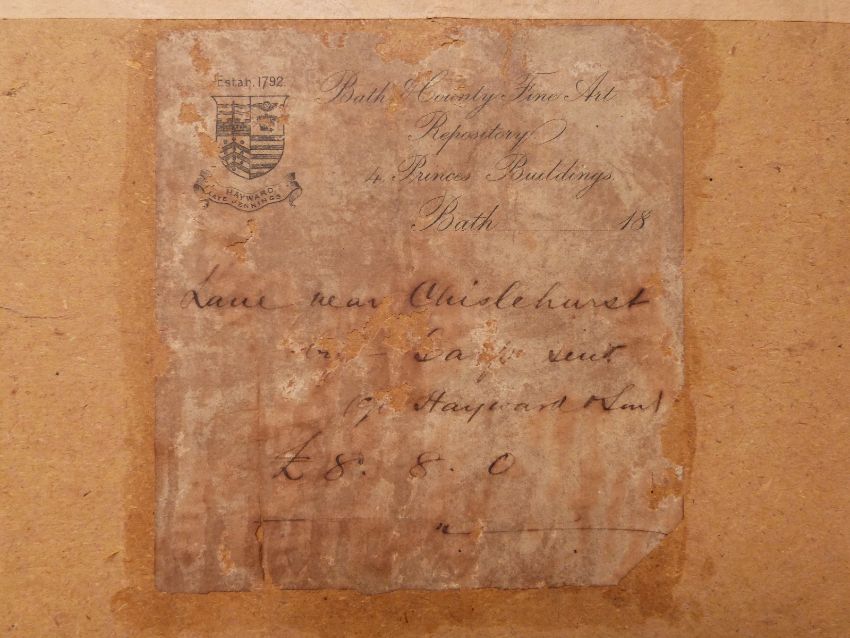 Estab. 1792
HAYWARD
LATE JENNINGS
Bath & County Fine Art
Repository
4 Princes Buildings
Bath 18
Lane near Chislehurst
sent
Hayward & Son
£8. 8. 0